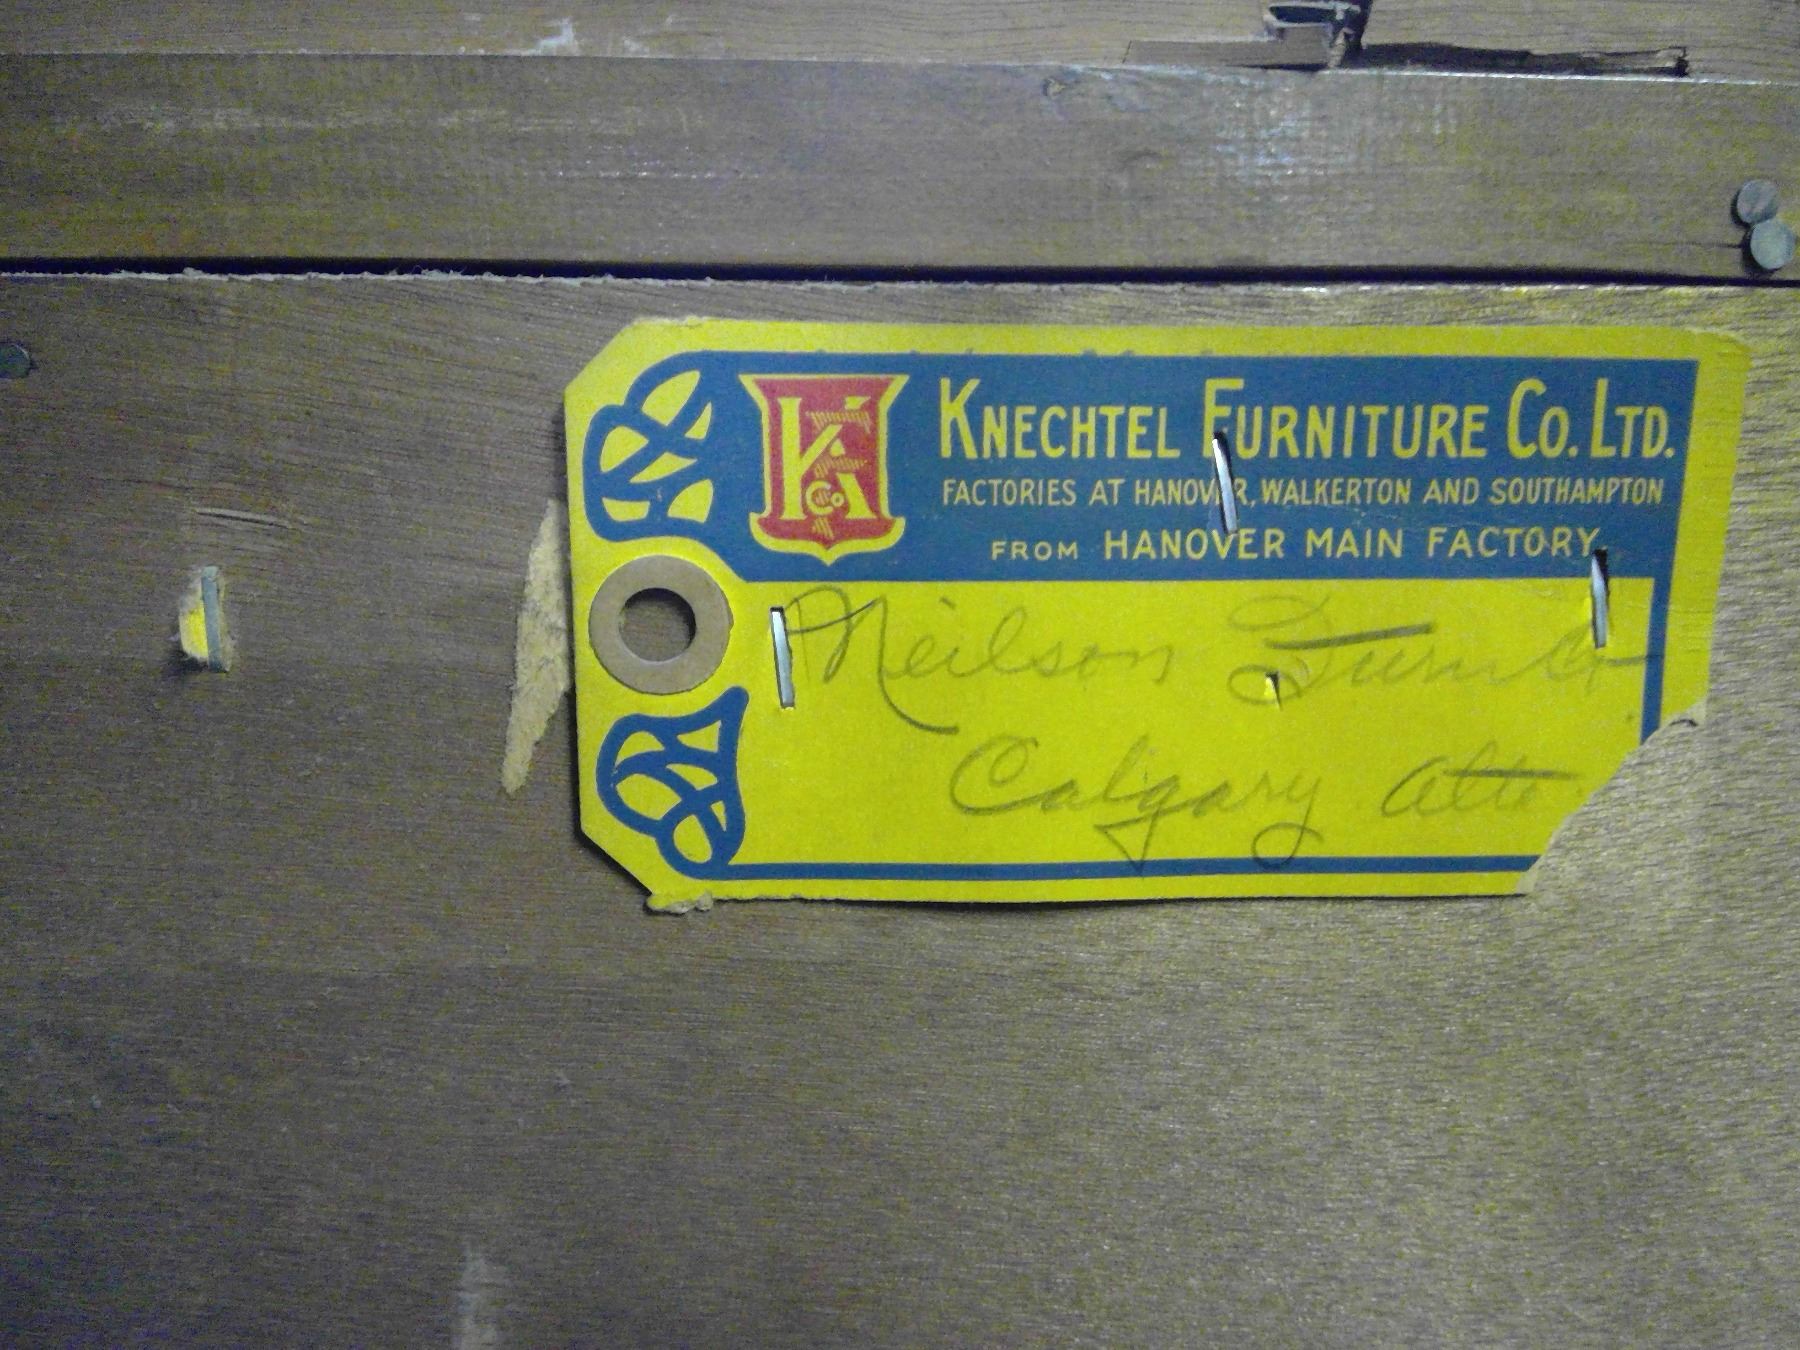 K
Co
KNECHTEL FURNITURE CO. LTD.
FACTORIES AT HANOVER, WALKERTON AND SOUTHAMPTON
FROM HANOVER MAIN FACTORY
Neilson Furn Co
Calgary Alta